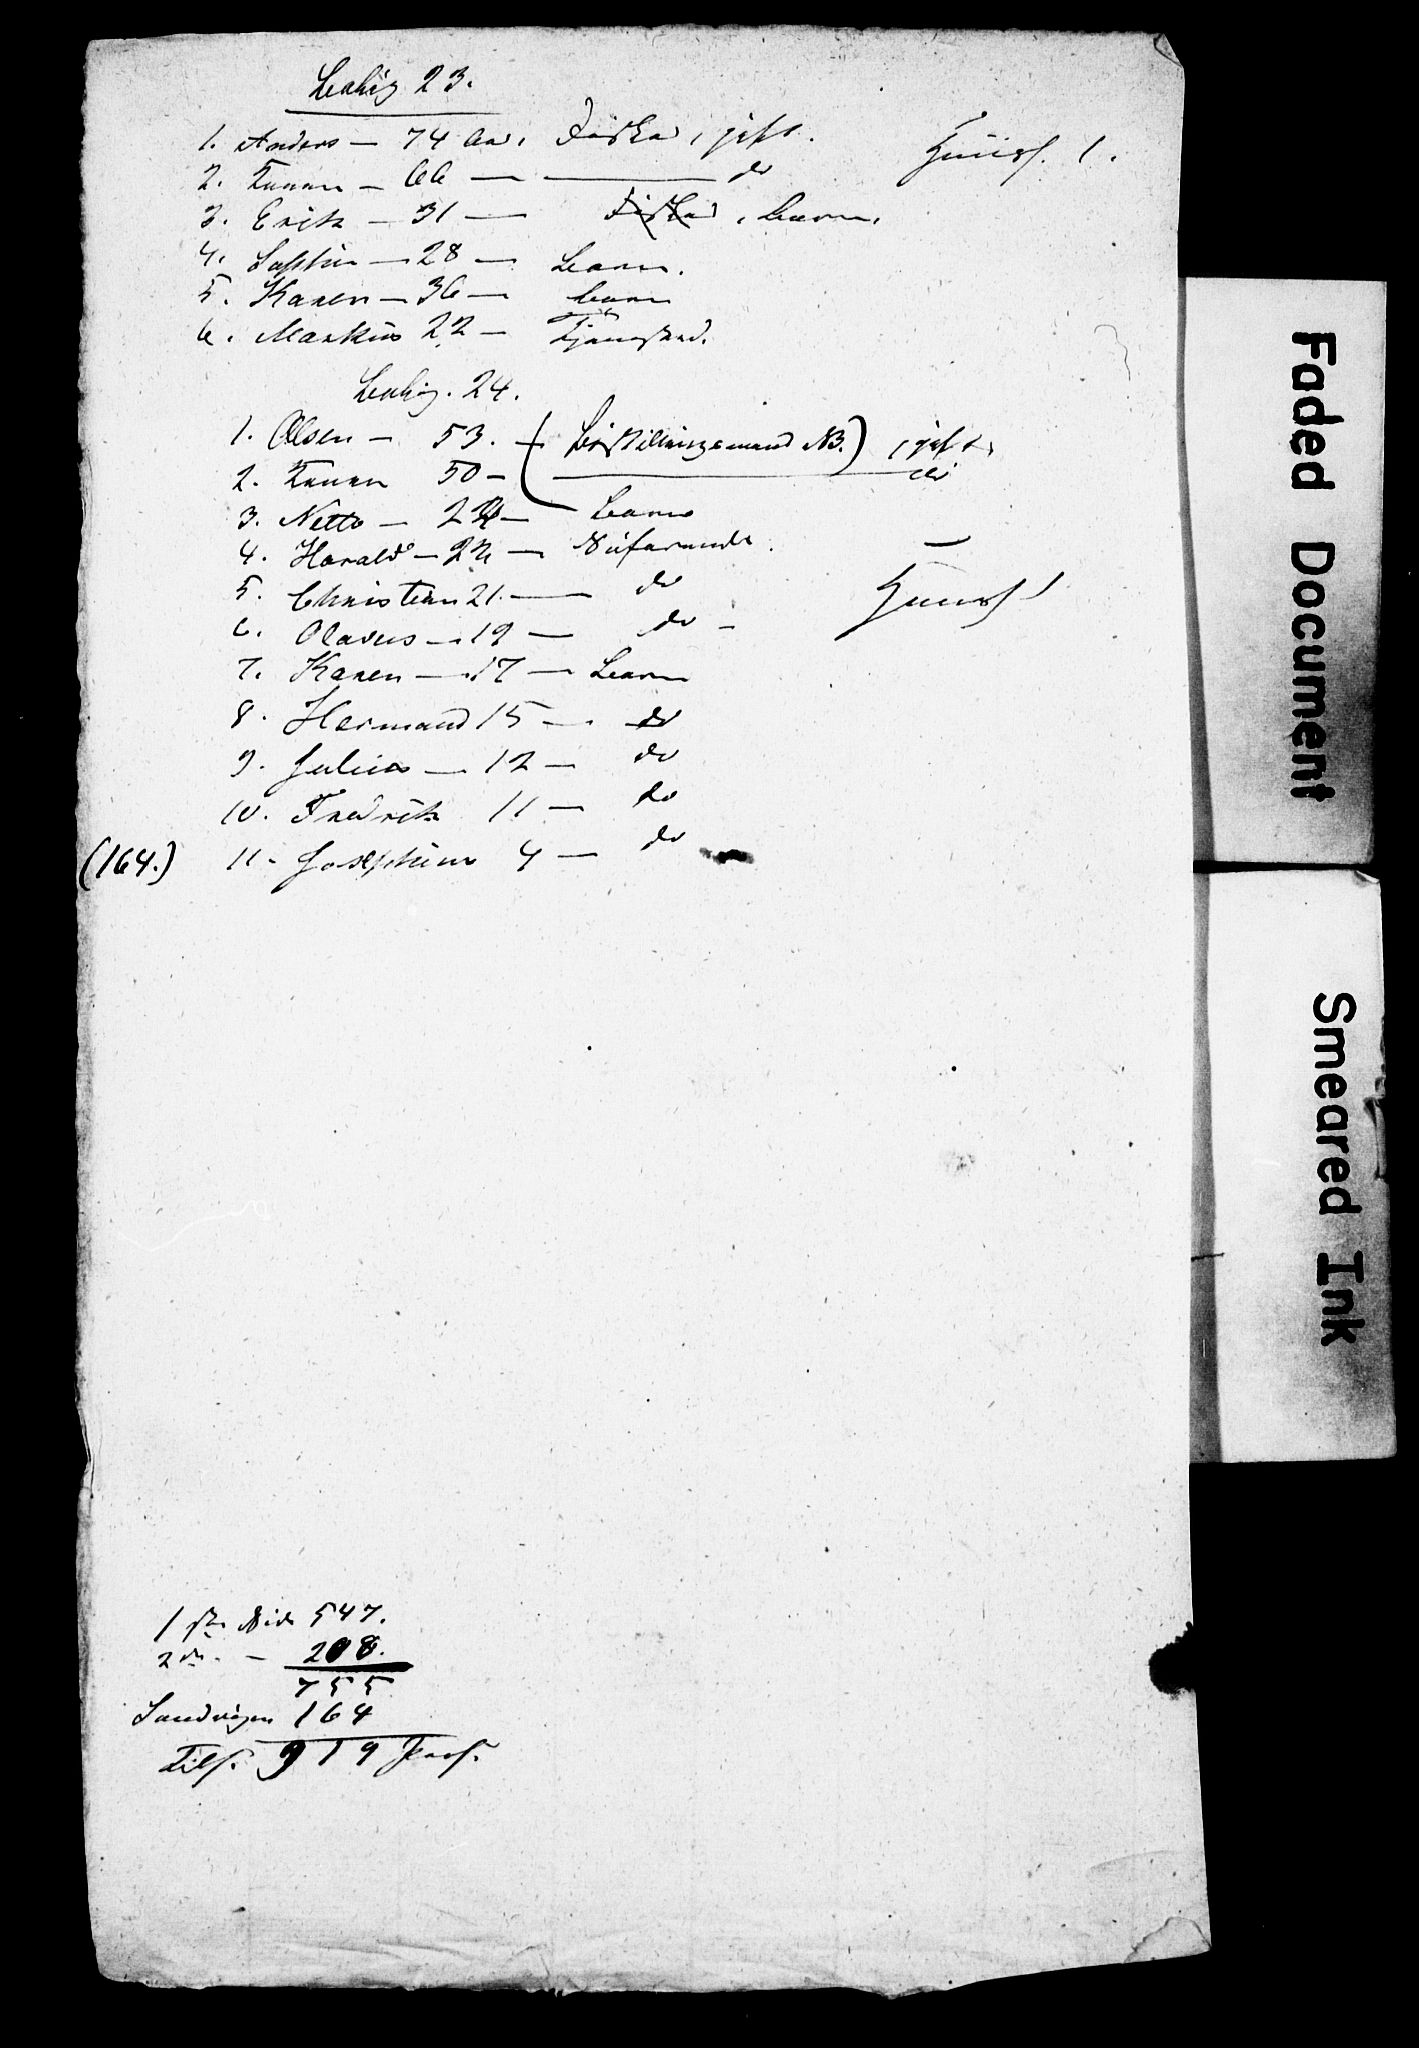 Bolig 23.
1. Anders — 74 Aar, Fisker, gift. Huusf. 1.
2. Konen — 66 — do
3. Erik — 31 — Fisker, barn.
4. — 28 — barn.
5. Karen — 36 — barn
6. Markus 22 — Tjenestkarl.
Bolig. 24.
1. Olsen — 53. — ( NB.) , gift,
2. Konen 50 — do
3. Nette — — barn
4. Harald — — Søfarende.
5. Christian 21. — do Huusf 1
6. Olavus — 19 — do —
7. Karen — 17 — barn
8. Hermand 15 — do
9. Julius — 12 — do
10. Fredrik 11 — do
(164.) 11. Josephine 4 — do
1ste Side 547.
2den — 208.
755
Sandvigen 164
Tils. 919 Pers.
Faded Document
Smeared Ink